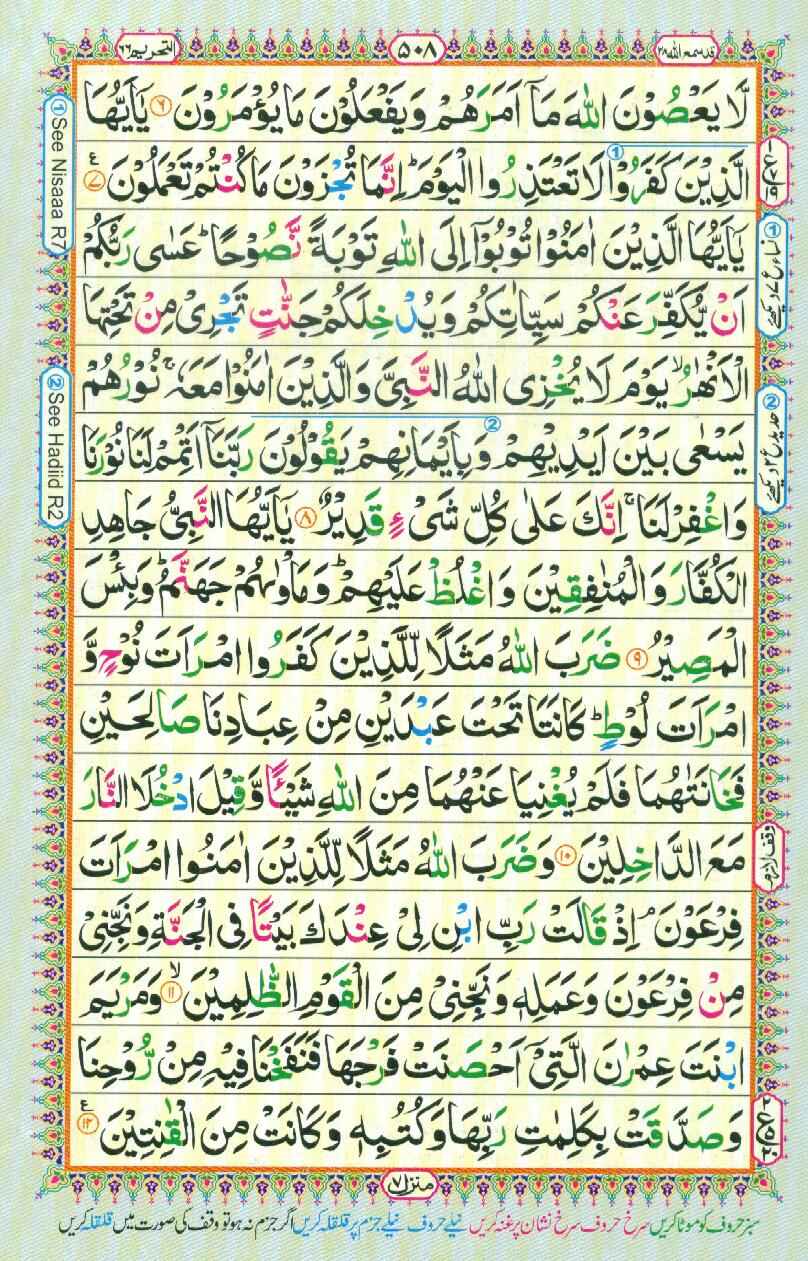 قد سمع الله ۲۸
۵۰۸
التحریم ۶۶
لَّا يَعْصُوْنَ اللّٰهَ مَاۤ اَمَرَهُمْ وَيَفْعَلُوْنَ مَا يُؤْمَرُوْنَ ۶ يٰۤاَيُّهَا
الَّذِيْنَ كَفَرُوْا لَا تَعْتَذِرُوا الْيَوْمَ ؕ اِنَّمَا تُجْزَوْنَ مَا كُنْتُمْ تَعْمَلُوْنَ ۷ ع
يٰۤاَيُّهَا الَّذِيْنَ اٰمَنُوْا تُوْبُوْۤا اِلَى اللّٰهِ تَوْبَةً نَّصُوْحًا ؕ عَسٰى رَبُّكُمْ
اَنْ يُّكَفِّرَ عَنْكُمْ سَيِّاٰتِكُمْ وَيُدْخِلَكُمْ جَنّٰتٍ تَجْرِىْ مِنْ تَحْتِهَا
الْاَنْهٰرُ ۙ يَوْمَ لَا يُخْزِى اللّٰهُ النَّبِىَّ وَالَّذِيْنَ اٰمَنُوْا مَعَهٗ ۚ نُوْرُهُمْ
يَسْعٰى بَيْنَ اَيْدِيْهِمْ وَبِاَيْمَانِهِمْ يَقُوْلُوْنَ رَبَّنَاۤ اَتْمِمْ لَنَا نُوْرَنَا
وَاغْفِرْ لَنَا ۚ اِنَّكَ عَلٰى كُلِّ شَىْءٍ قَدِيْرٌ ۸ يٰۤاَيُّهَا النَّبِىُّ جَاهِدِ
الْكُفَّارَ وَالْمُنٰفِقِيْنَ وَاغْلُظْ عَلَيْهِمْ ؕ وَمَاْوٰىهُمْ جَهَنَّمُ ؕ وَبِئْسَ
الْمَصِيْرُ ۹ ضَرَبَ اللّٰهُ مَثَلًا لِّلَّذِيْنَ كَفَرُوا امْرَاَتَ نُوْحٍ وَّ
امْرَاَتَ لُوْطٍ ؕ كَانَتَا تَحْتَ عَبْدَيْنِ مِنْ عِبَادِنَا صَالِحَيْنِ
فَخَانَتٰهُمَا فَلَمْ يُغْنِيَا عَنْهُمَا مِنَ اللّٰهِ شَيْـًٔا وَّقِيْلَ ادْخُلَا النَّارَ
مَعَ الدّٰخِلِيْنَ ۱۰ وَضَرَبَ اللّٰهُ مَثَلًا لِّلَّذِيْنَ اٰمَنُوا امْرَاَتَ
فِرْعَوْنَ ۘ اِذْ قَالَتْ رَبِّ ابْنِ لِىْ عِنْدَكَ بَيْتًا فِى الْجَنَّةِ وَنَجِّنِىْ
مِنْ فِرْعَوْنَ وَعَمَلِهٖ وَنَجِّنِىْ مِنَ الْقَوْمِ الظّٰلِمِيْنَ ۙ ۱۱ وَمَرْيَمَ
ابْنَتَ عِمْرٰنَ الَّتِىْۤ اَحْصَنَتْ فَرْجَهَا فَنَفَخْنَا فِيْهِ مِنْ رُّوْحِنَا
وَصَدَّقَتْ بِكَلِمٰتِ رَبِّهَا وَكُتُبِهٖ وَكَانَتْ مِنَ الْقٰنِتِيْنَ ۱۲ ع
منزل ۷
سبز حروف کو موٹا کریں سرخ حروف سرخ نشان پر غنہ کریں نیلے حروف نیلے جزم پر قلقلہ کریں اگر جزم نہ ہو تو وقف کی صورت میں قلقلہ کریں
① See Nisaaa R7
② See Hadiid R2
① نساء ع ۷ دیکھئے
② حدید ع ۲ دیکھئے
وقف لازم